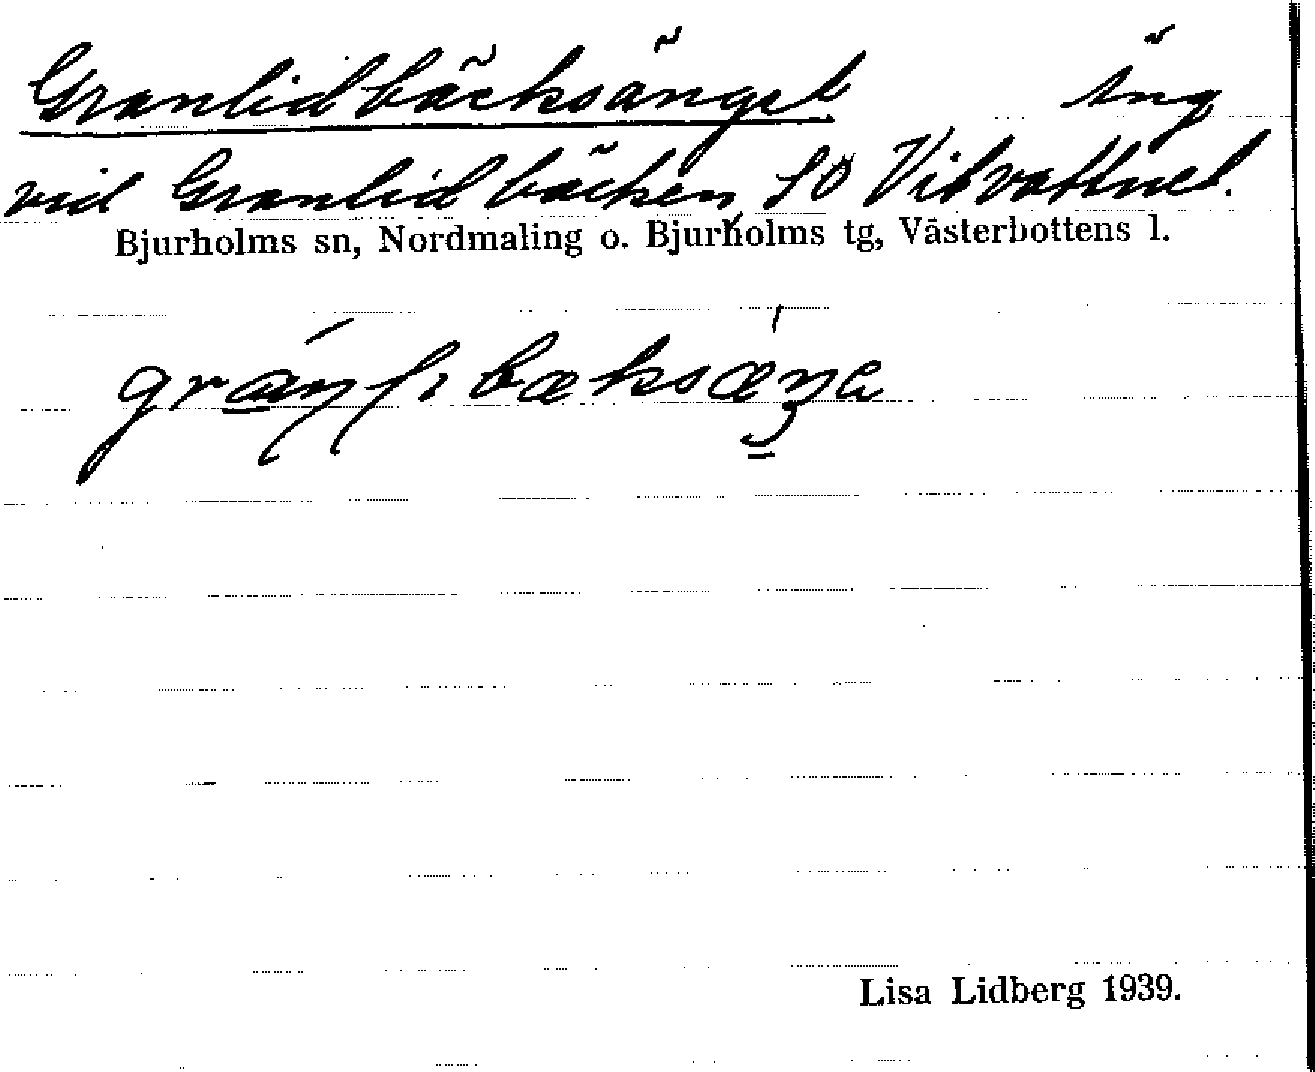 Granlidbäcksänget Äng
vid Granlidbäcken, SO Vitvattnet.
Bjurholms sn, Nordmaling o. Bjurholms tg, Västerbottens l.
Lisa Lidberg 1939.